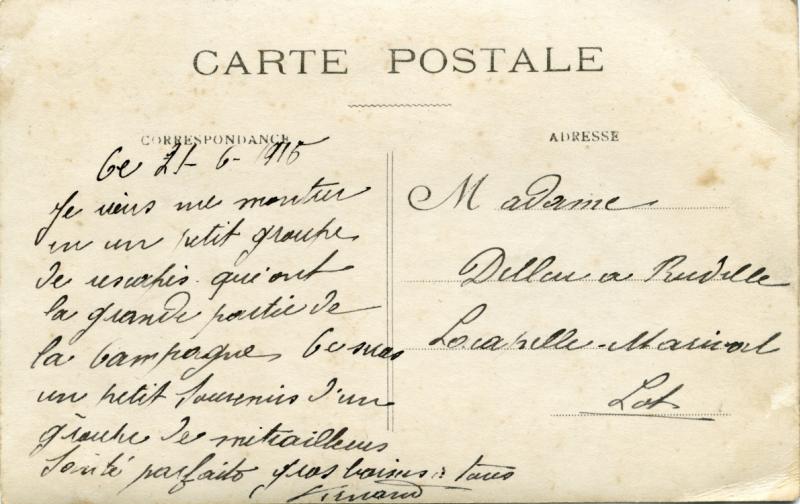 CARTE POSTALE
CORRESPONDANCE
ADRESSE
Ce 21- 6- 1915
Je viens me montrer
en un petit groupe
de rescapés qui ont
la grande partie de
la Campagne Ce sera
un petit Souvenir d'un
groupe de mitrailleurs
Santé parfaite gros baisers à tous
Fernand
Madame
Dellac a Rudelle
Lacapelle-Marival
Lot